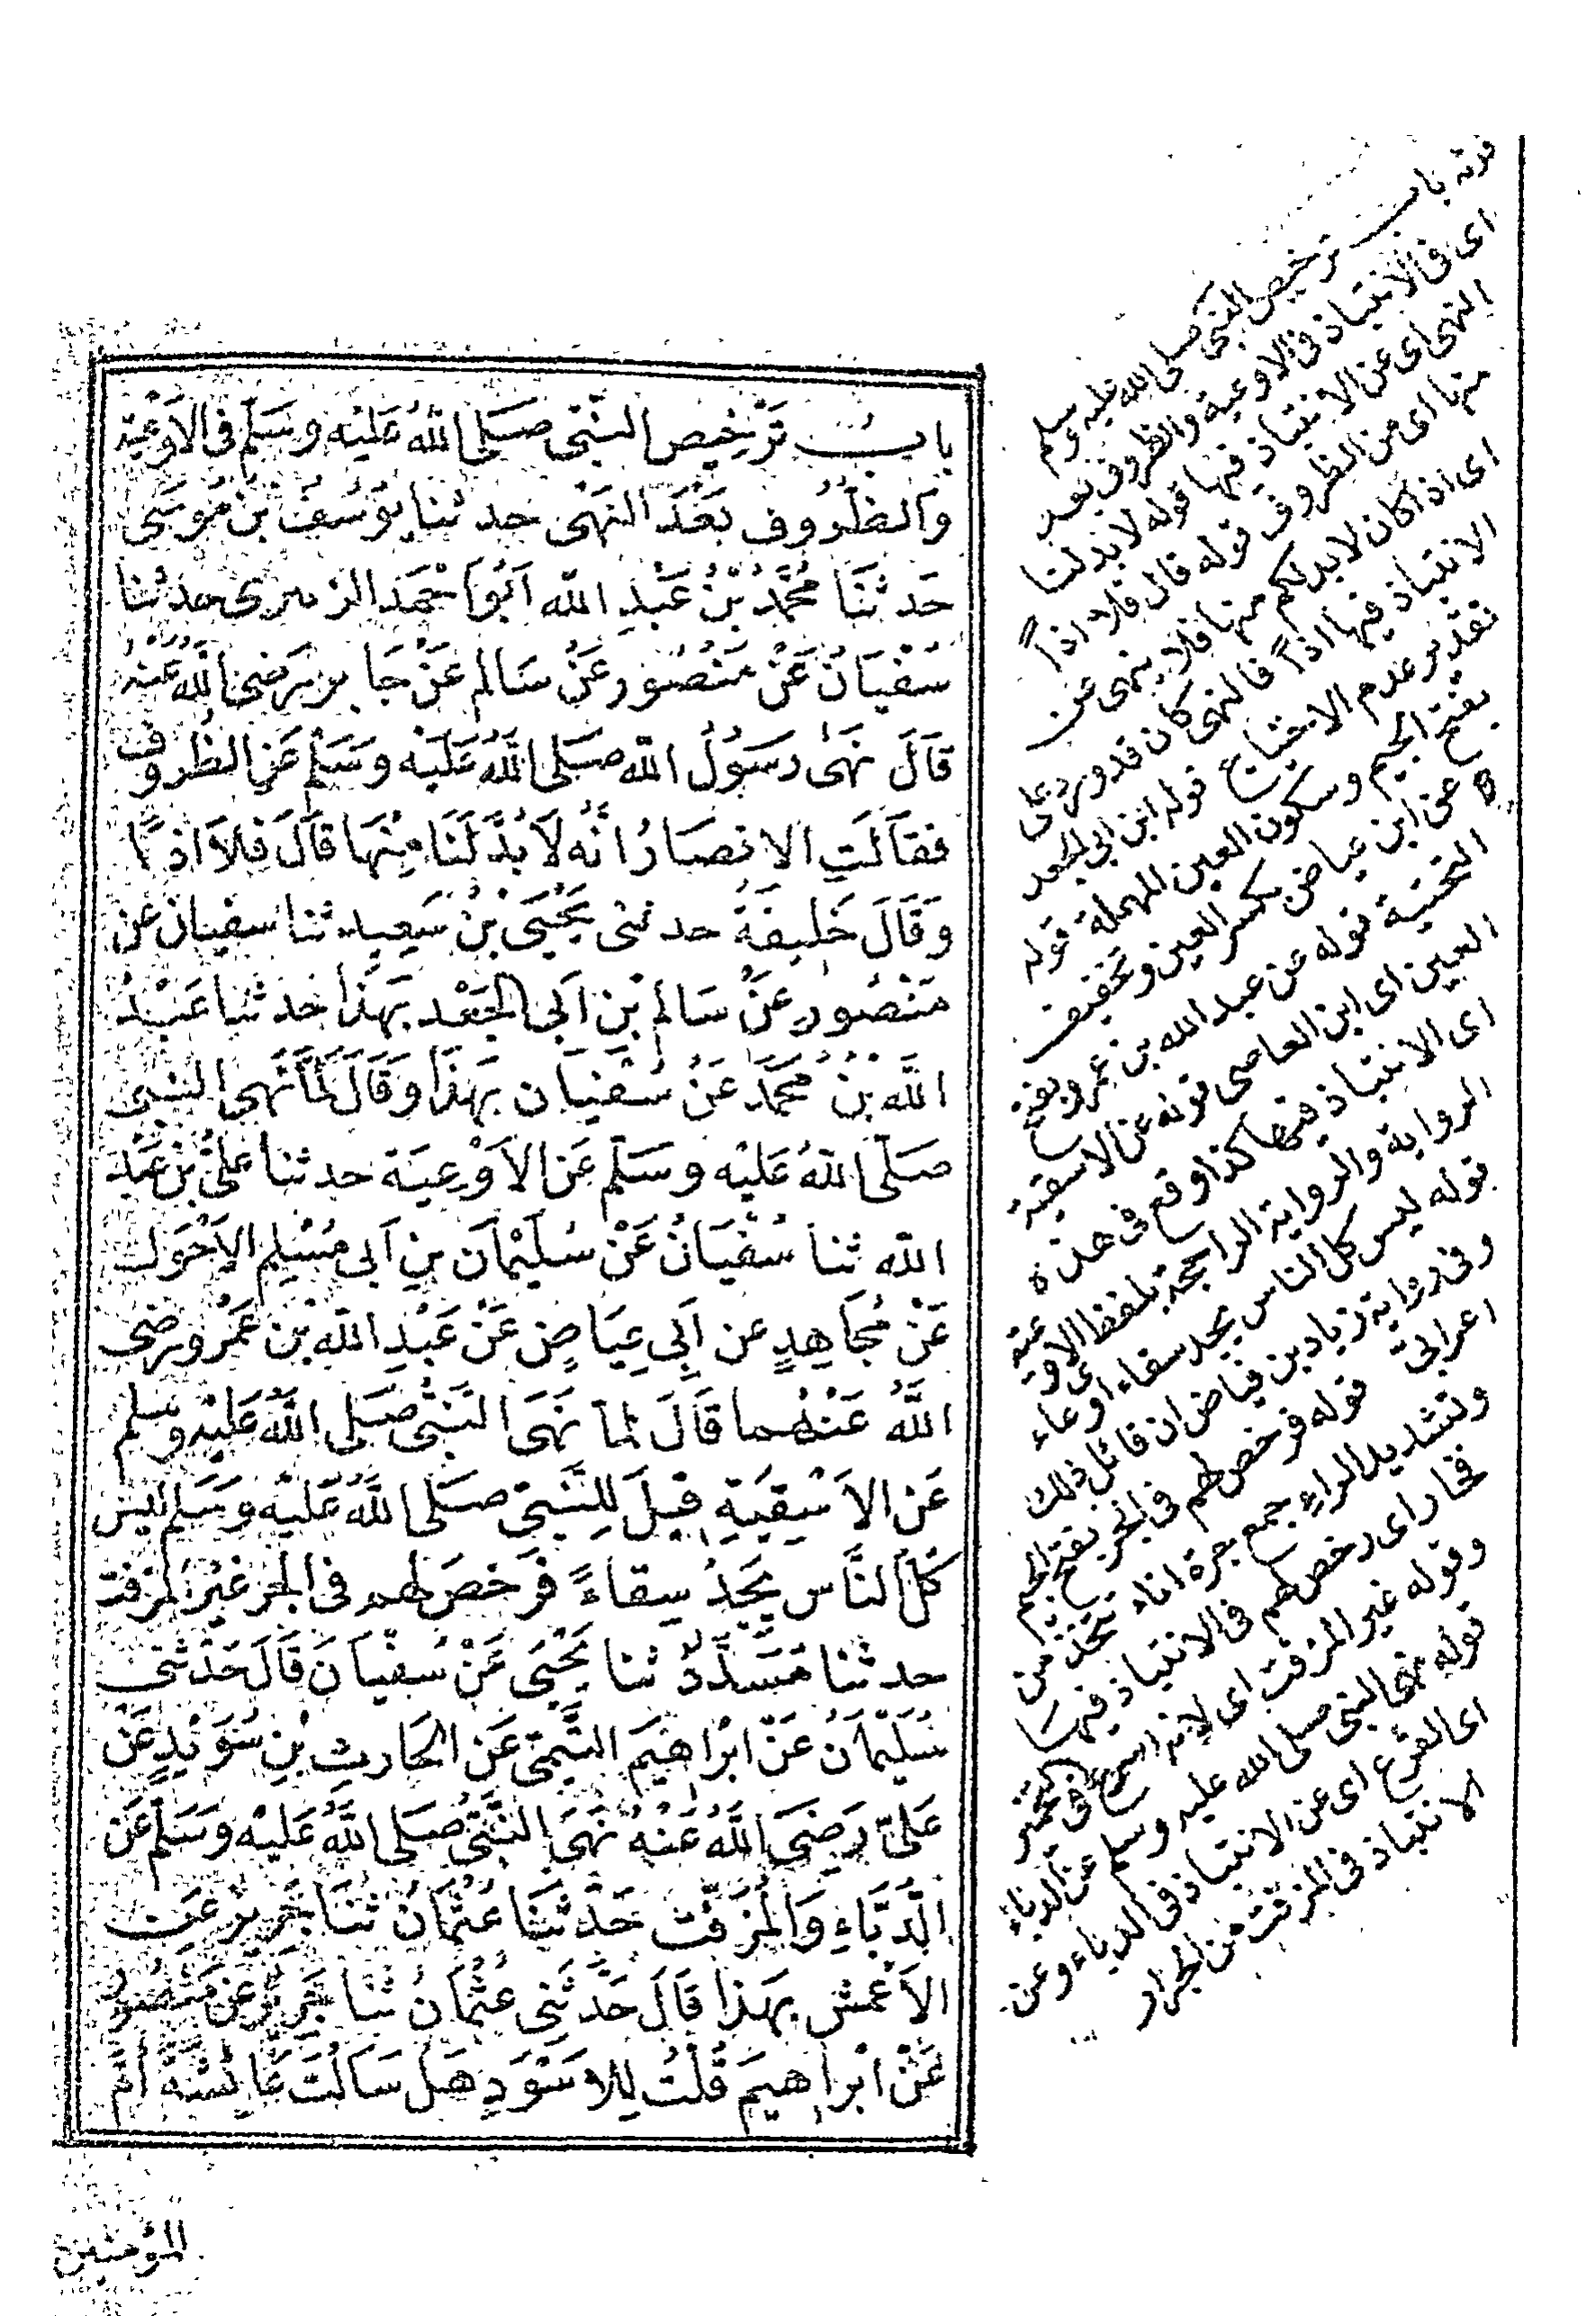 باب ترخيص النبي صلى الله عليه وسلم في الاوعية
والظروف بعد النهى حدثنا يوسف بن موسى
حدثنا محمد بن عبد الله ابو احمد الزبيرى حدثنا
سفيان عن منصور عن سالم عن جابر رضى الله عنه
قال نهى رسول الله صلى الله عليه وسلم عن الظروف
فقالت الانصار انه لا بد لنا منها قال فلا اذا
وقال خليفة حدثنى يحيى بن سعيد ثنا سفيان عن
منصور عن سالم بن ابى الجعد بهذا حدثنا عبد
الله بن محمد عن سفيان بهذا وقال لما نهى النبى
صلى الله عليه وسلم عن الاوعية حدثنا على بن عبد
الله ثنا سفيان عن سليمان بن ابى مسلم الاحول
عن مجاهد عن ابى عياض عن عبد الله بن عمرو رضى
الله عنهما قال لما نهى النبى صلى الله عليه وسلم
عن الاسقية قيل للنبى صلى الله عليه وسلم ليس
كل الناس يجد سقاء فرخص لهم فى الجر غير المزفت
حدثنا مسدد ثنا يحيى عن سفيان قال حدثنى
سليمان عن ابراهيم التيمى عن الحارث بن سويد عن
على رضى الله عنه نهى النبى صلى الله عليه وسلم عن
الدباء والمزفت حدثنا عثمان ثنا جرير عن
الاعمش بهذا قال حدثنى عثمان ثنا جرير عن منصور
عن ابراهيم قلت للاسود هل سالت عائشة ام
المؤمنين
قوله باب ترخيص النبى صلى الله عليه وسلم
اى فى الانتباذ فى الاوعية والظروف بعد
النهى اى عن الانتباذ فيها قوله لا بد لنا
منها اى من الظروف قوله قال فلا اذاً
اى اذا كان لا بد لكم منها فلا ينهى عن
الانتباذ فيها اذاً فالنهى كان قد ورد على
تقدير عدم الاحتياج قوله ابن ابى الجعد
بفتح الجيم وسكون العين المهملة قوله
عن ابن عياض بكسر العين وتخفيف
التحتية قوله عن عبد الله بن عمرو بفتح
العين اى ابن العاصى قوله عن الاسقية
اى الانتباذ فيها كذا وقع فى هذه
الرواية والرواية الراجحة بلفظ الاوعية
قوله ليس كل الناس يجد سقاء اى وعاء
وفى رواية زياد بن فياض ان قائل ذلك
اعرابى قوله فرخص لهم فى الجر بفتح الجيم
وتشديد الراء جمع جرة اناء يتخذ من
فخار اى رخص لهم فى الانتباذ فيها
وقوله غير المزفت اى لانه اسرع فى التخمر
قوله نهى النبى صلى الله عليه وسلم عن الدباء
اى القرع اى عن الانتباذ فى الدباء وعن
الانتباذ فى المزفت من الجرار